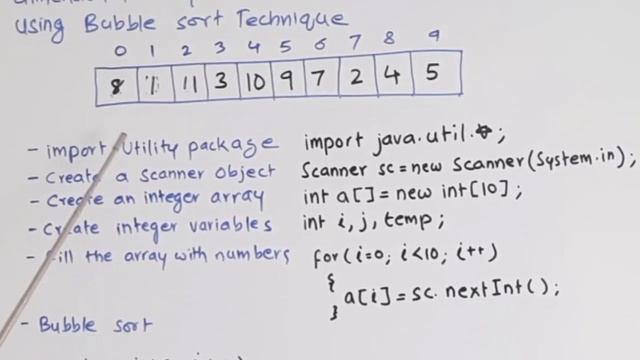 using Bubble sort Technique
0 1 2 3 4 5 6 7 8 9
8 11 3 10 9 7 2 4 5
- import Utility package import java.util.*;
- Create a scanner object Scanner sc = new Scanner(System.in);
- Create an integer array int a[] = new int[10];
- Create integer variables int i, j, temp;
- Fill the array with numbers for(i=0; i<10; i++)
{
a[i] = sc.nextInt();
}
- Bubble sort